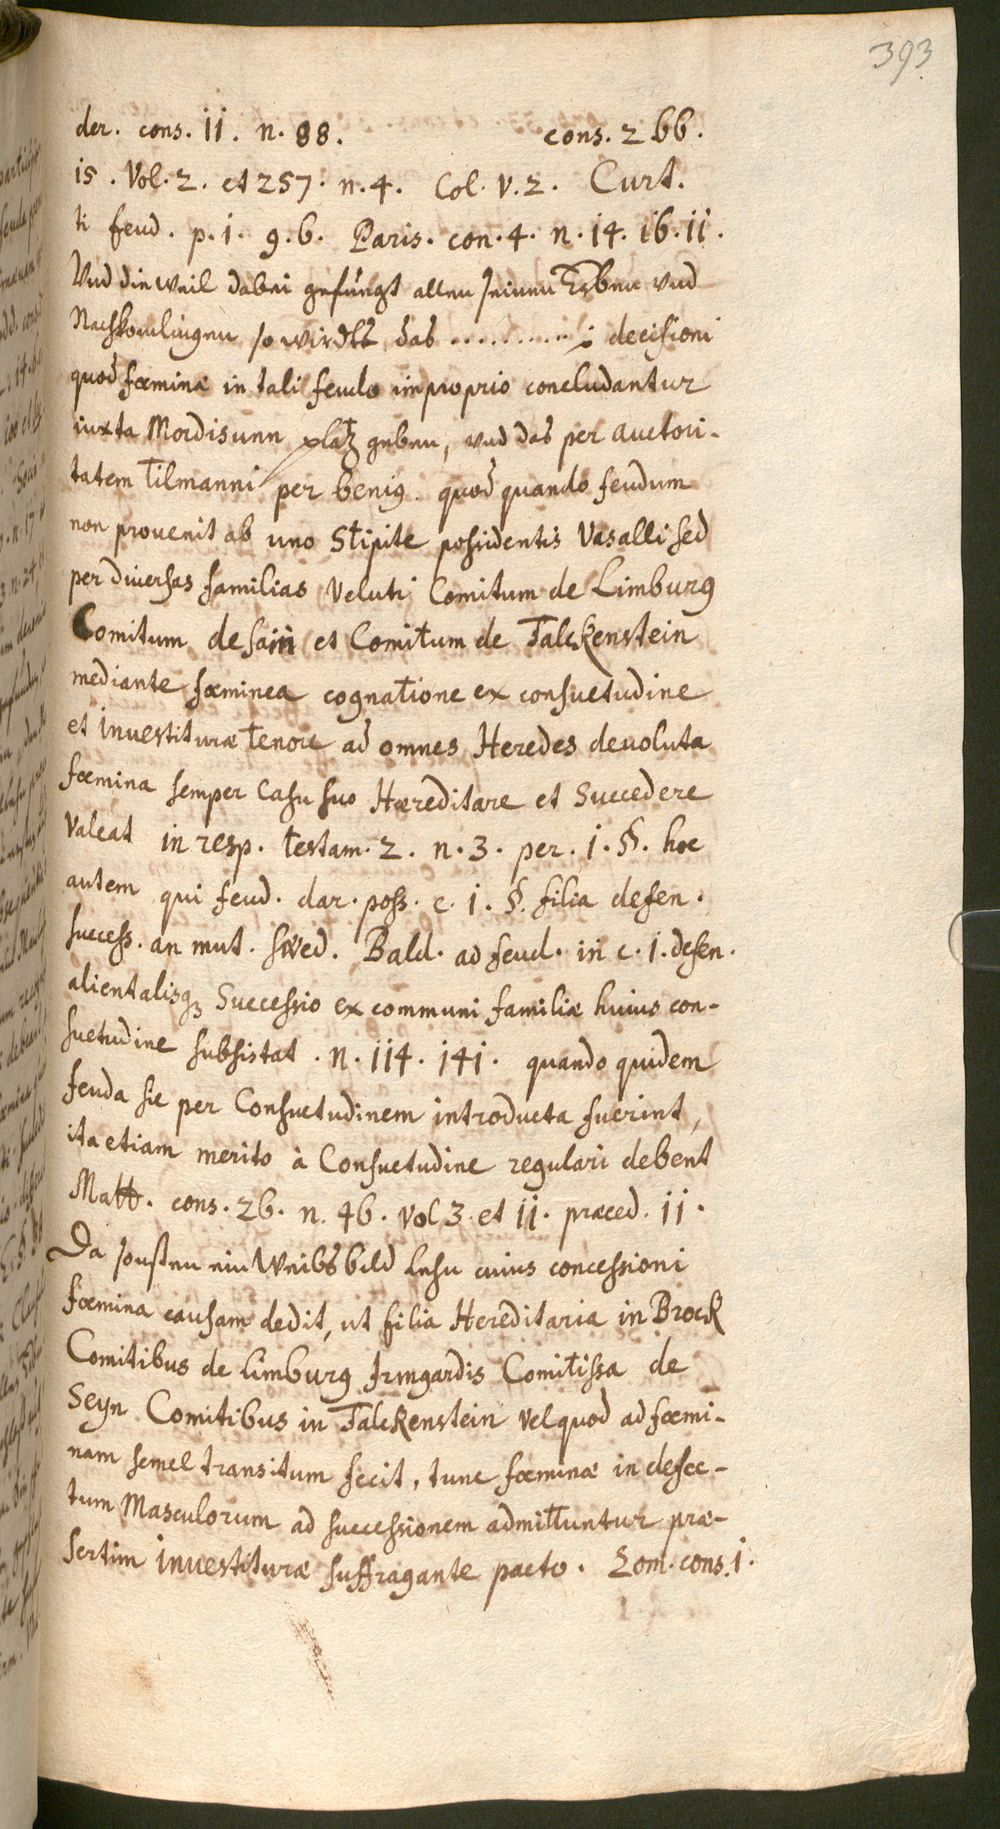 393
der. cons. 11. n. 88. cons. 266.
is. Vol. 2. et 257. n. 4. Col. V. 2. Curt.
ti feud. p. 1. 9. 6. Paris. con. 4. n. 14. 16. 11.
Vnd dieweil dabei gefüngt allen seinen Erben vnd
Nachkomlingen so wirdtt das .......... decisioni
quod fœminæ in tali feudo improprio concludantur
iuxta Mordisunn platz geben, vnd das per auctori-
tatem Tilmanni per benig. quod quando feudum
non provenit ab uno Stipite possidentis Vasalli sed
per diversas familias Veluti Comitum de Limburg
Comitum de Sain et Comitum de Falckenstein
mediante fœminea cognatione ex consuetudine
et investituræ tenore ad omnes Heredes devoluta
fœmina semper Casu suo Hæreditare et Succedere
Valeat in resp. testam. 2. n. 3. per. 1. §. hoc
autem qui feud. dar. poss. c. 1. §. filia de feu.
success. an mut. sued. Bald. ad feud. in c. 1. de feu.
alien talisq Successio ex communi familiæ huius con-
suetudine subsistat. n. 114. 141. quando quidem
feuda sic per Consuetudinem introducta fuerint,
ita etiam merito à Consuetudine regulari debent
Matt. cons. 26. n. 46. vol 3 et 11. præced. 11.
Da sonsten ein Weibsbild Lehn cuius concessioni
fœmina causam dedit, ut filia Hereditaria in Brock
Comitibus de Limburg Irmgardis Comitissa de
Seyn Comitibus in Falckenstein vel quod ad fœmi-
nam semel transitum fecit, tunc fœminæ in defec-
tum Masculorum ad successionem admittuntur præ-
sertim investituræ suffragante pacto. Zom. cons. 1.